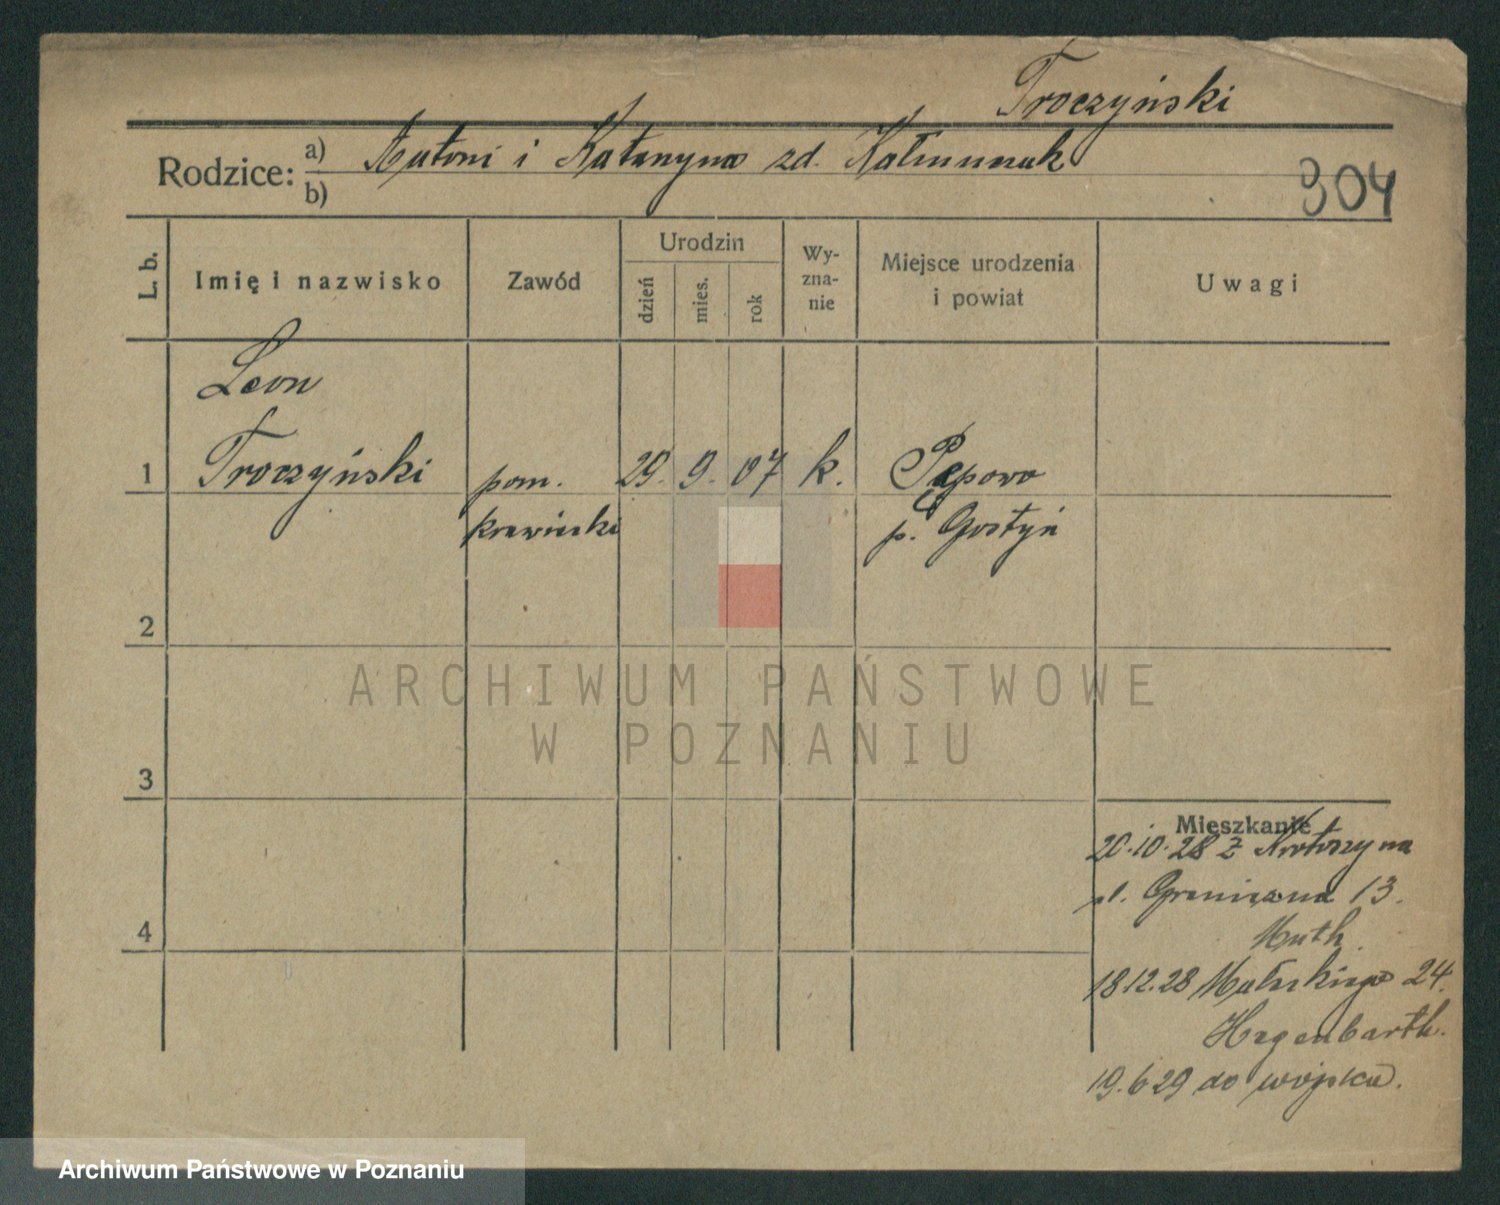 Troczyński
Rodzice: a) Antoni i Katarzyna zd.
b)
304
L. b.
Imię i nazwisko
Zawód
Urodzin
dzień
mies.
rok
Wy-
zna-
nie
Miejsce urodzenia
i powiat
Uwagi
Leon
1 Troczyński pom. 29. 9. 07 k. Pępowo
krawiecki p. Gostyń
2
ARCHIWUM PAŃSTWOWE
W POZNANIU
3
Mieszkanie
20.10.28 z Krotoszyna
ul. Graniczna 13.
Muth.
4
18.12.28 Małeckiego 24.
Hagenbarth.
19.6.29 do wojska.
Archiwum Państwowe w Poznaniu